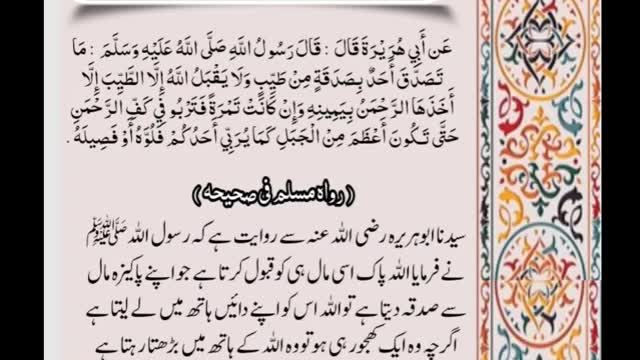 عَن أَبِي هُرَيْرَةَ قَالَ : قَالَ رَسُولُ اللَّهِ صَلَّى اللَّهُ عَلَيْهِ وَسَلَّمَ : مَا
تَصَدَّقَ أَحَدٌ بِصَدَقَةٍ مِنْ طَيِّبٍ وَلَا يَقْبَلُ اللَّهُ إِلَّا الطَّيِّبَ إِلَّا
أَخَذَهَا الرَّحْمَنُ بِيَمِينِهِ وَإِنْ كَانَتْ تَمْرَةً فَتَرْبُو فِي كَفِّ الرَّحْمَنِ
حَتَّى تَكُونَ أَعْظَمَ مِنْ الْجَبَلِ كَمَا يُرَبِّي أَحَدُكُمْ فَلُوَّهُ أَوْ فَصِيلَهُ .
(رواه مسلم فی صحيحه)
سیدنا ابو ہریرہ رضی اللہ عنہ سے روایت ہے کہ رسول اللہ ﷺ
نے فرمایا اللہ پاک اسی مال ہی کو قبول کرتا ہے جو اپنے پاکیزہ مال
سے صدقہ دیتا ہے تو اللہ اس کو اپنے دائیں ہاتھ میں لے لیتا ہے
اگرچہ وہ ایک کھجور ہی ہو تو وہ اللہ کے ہاتھ میں بڑھتا رہتا ہے